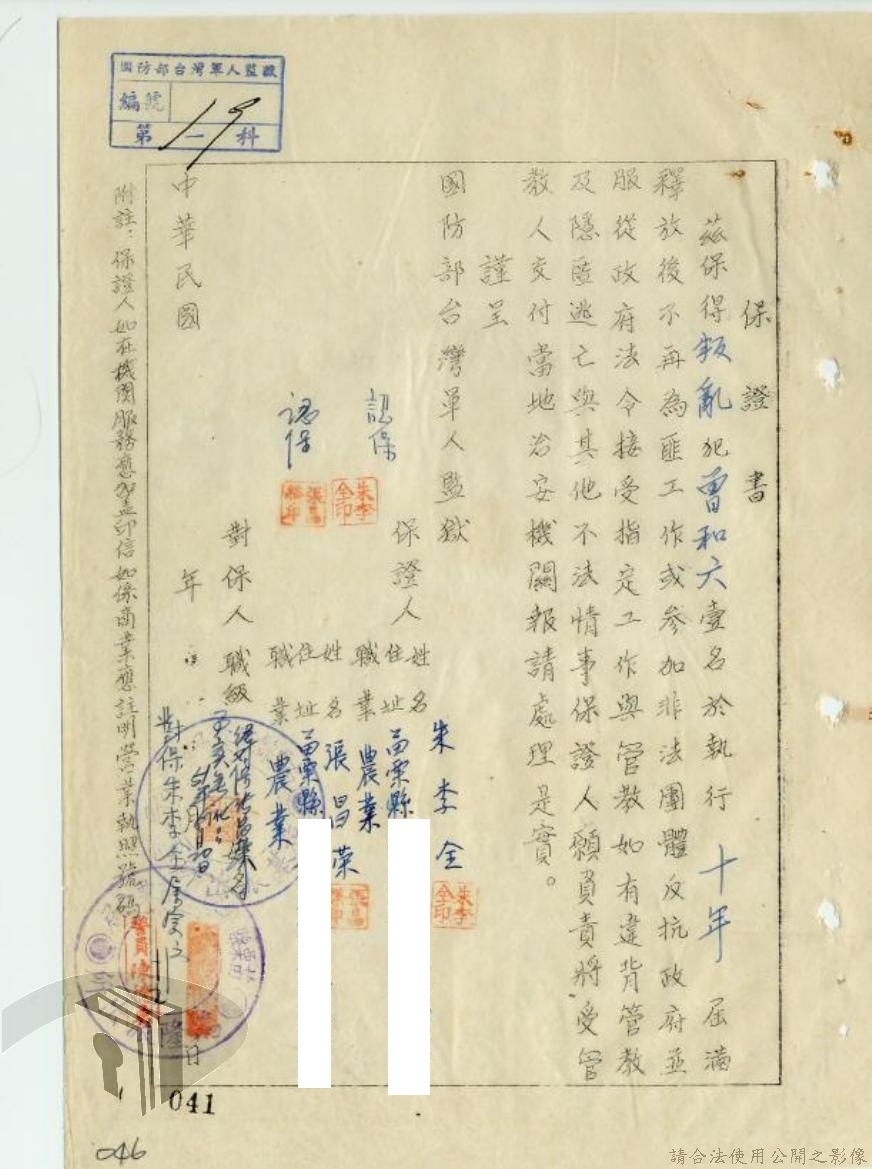 國防部台灣軍人監獄
編號
19
第一科
保證書
茲保得叛亂犯曾和六壹名於執行十年屆滿
釋放後不再為匪工作或參加非法團體反抗政府並
服從政府法令接受指定工作與管教如有違背管教
及隱匿逃亡與其他不法情事保證人願負責將受管
教人交付當地治安機關報請處理是實。
謹呈
國防部台灣軍人監獄
保證人
姓名 朱李全
朱李全印
住址 苗栗縣
職業 農業
認保
朱李全印
姓名 張昌荣
住址 苗栗縣
職業 農業
認保
對保人職級
對保朱李全
中華民國 年 月 日
附註：保證人如在機関服務應加蓋印信如係商業應註明營業執照號碼
041
046
請合法使用公開之影像